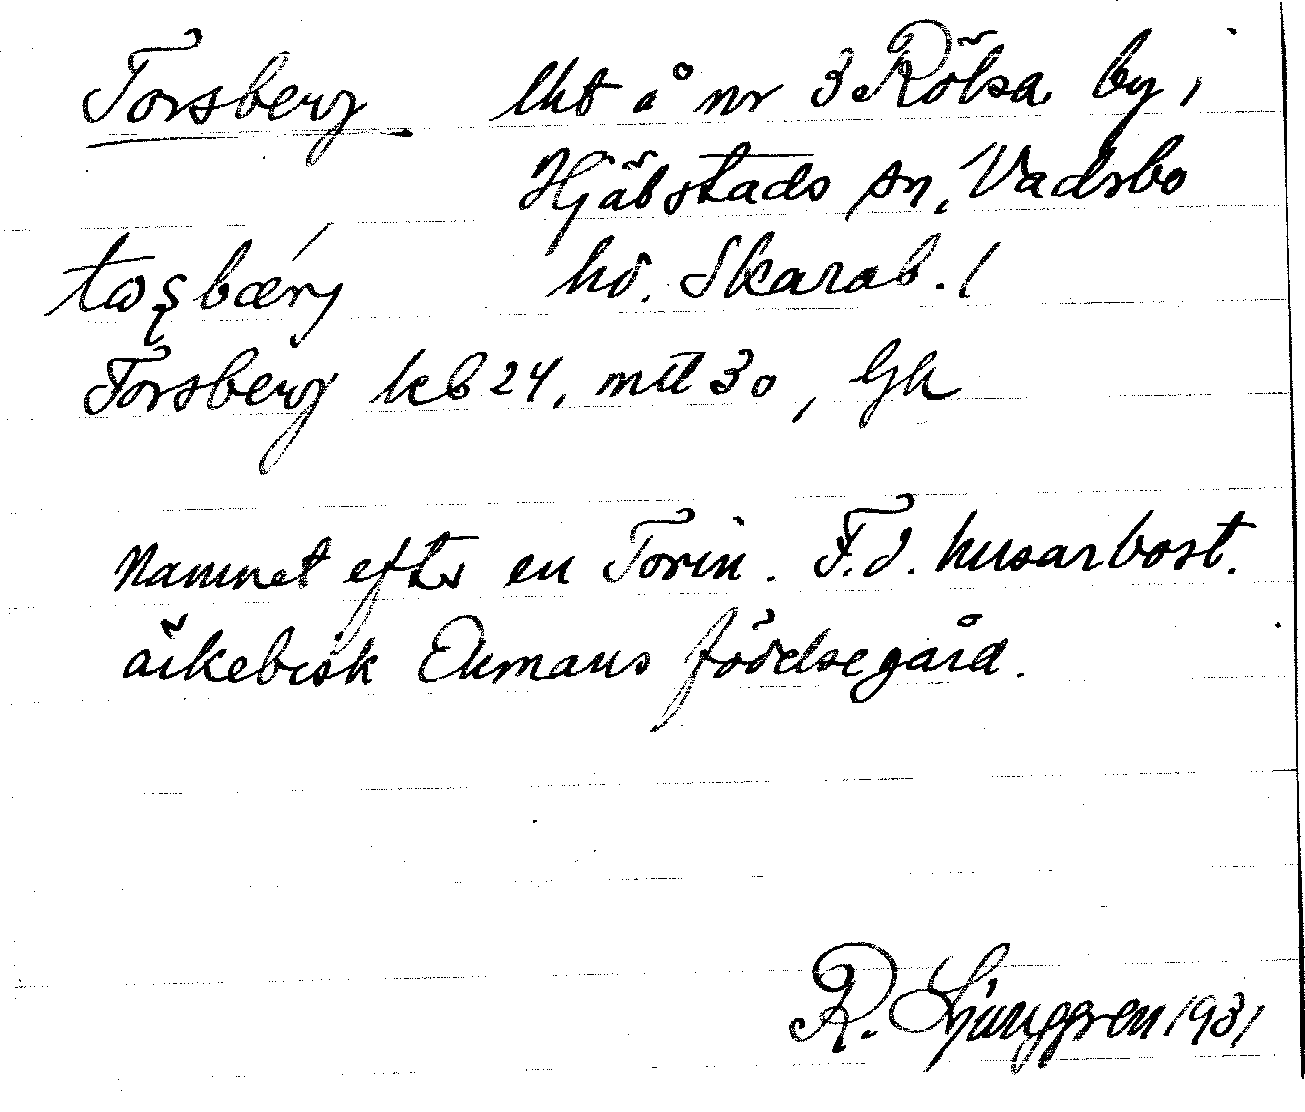 Torsberg lht å nr 3 Rölsa by i
Hjälstads sn, Vadsbo
hd. Skarab. l
tɷʂbærj
Torsberg kb 24, mtl 30, Gk
Namnet efter en Torin. F.d. husarbost.
ärkebisk Ekmans födelsegård.
R. Ljunggren 1931